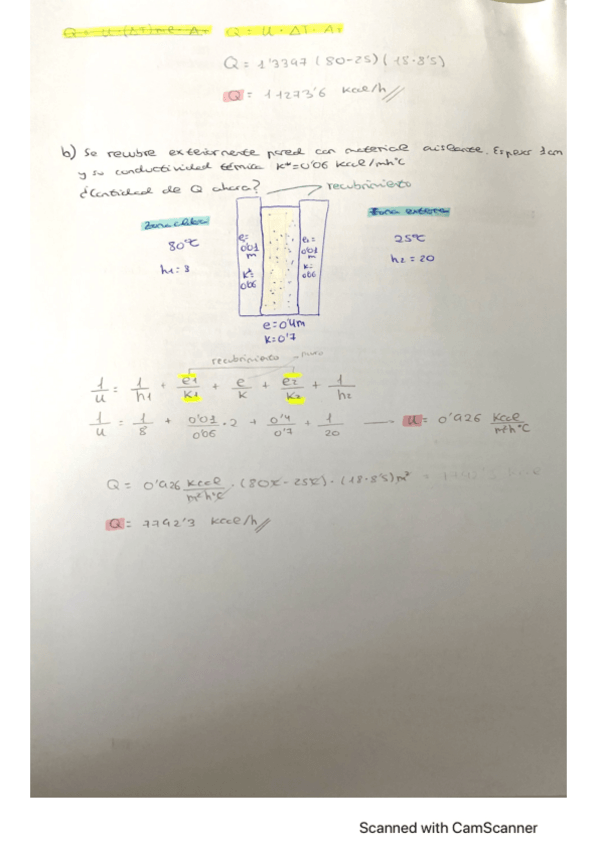 Q = U · (ΔT)me · AT Q = U · ΔT · AT
Q = 1'3397 (80-25) (18·8'5)
Q = 11273'6 kcal/h
b) Se recubre exteriormente pared con material aislante. Espesor 1cm
y su conductividad térmica k*=0'06 kcal/mh°C
¿Cantidad de Q ahora? recubrimiento
Zona cálida Zona externa
80°C e= 0'01 m e2= 0'01 m 25°C
h1 = 8 k*= 0'06 k= 0'06 h2 = 20
e=0'4m
k=0'7
recubrimiento muro
1/u = 1/h1 + e1/k1 + e/k + e2/k2 + 1/h2
1/u = 1/8 + 0'01/0'06 · 2 + 0'4/0'7 + 1/20 — u = 0'926 kcal/m²h°C
Q = 0'926 kcal/m²h°C · (80°C - 25°C) · (18·8'5) m²
Q = 7792'3 kcal/h
Scanned with CamScanner